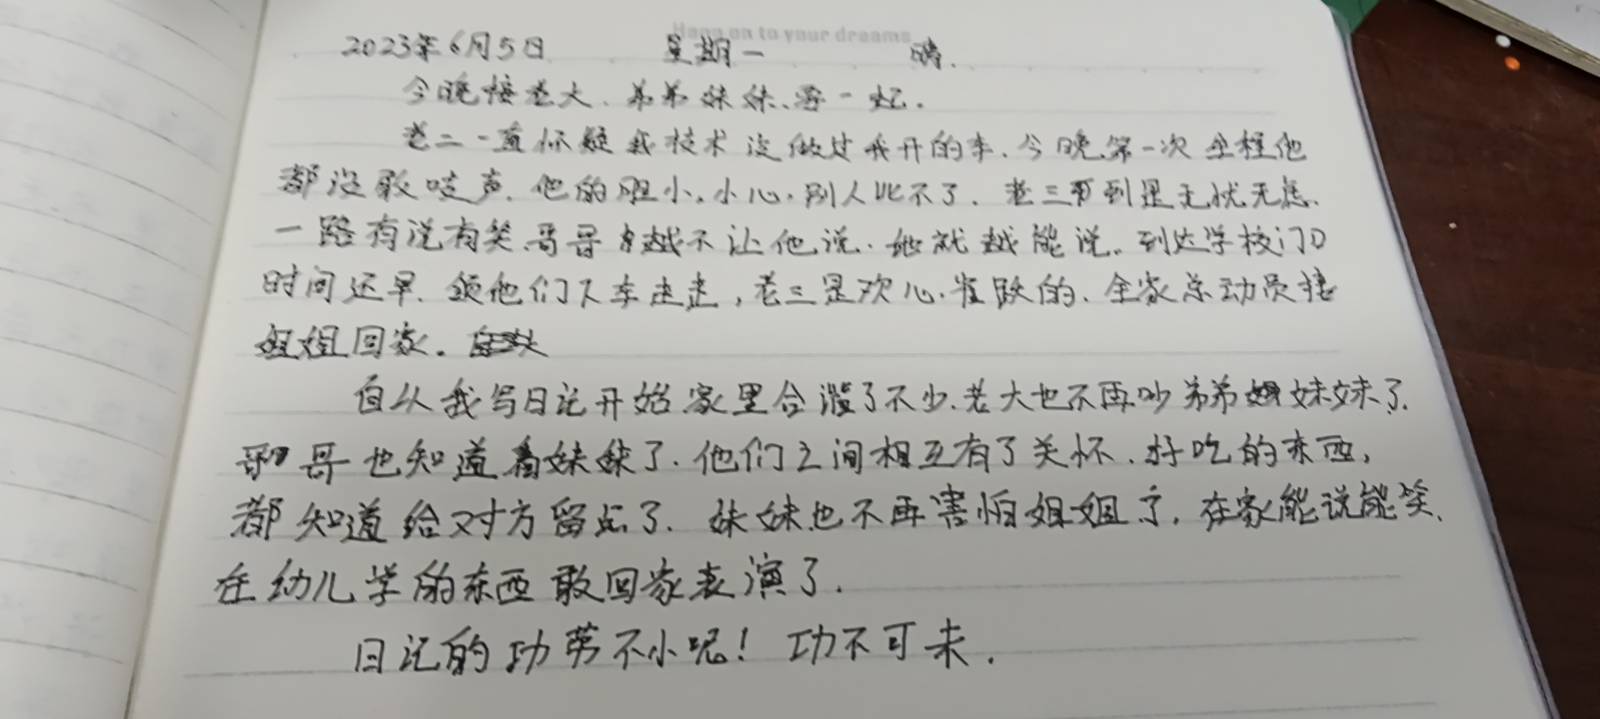 Hang on to your dreams
2023年6月5日 星期一 晴.
今晚接老大、弟弟妹妹、一起.
老二一直怀疑我技术没做过我开的车.今晚第一次全程他
都没敢吱声.他的胆小、小心,别人比不了.老三到是无忧无虑.
一路有说有笑.哥哥越不让他说.她就越能说.到达学校门口
时间还早.领他们下车走走,老三是欢心.雀跃的.全家总动员接
姐姐回家.
自从我写日记开始家里合谐了不少.老大也不再吵弟弟妹妹了.
哥也知道着妹妹了.他们之间相互有了关怀.好吃的东西,
都知道给对方留点了.妹妹也不再害怕姐姐了,在家能说能笑.
在幼儿学的东西敢回家表演了.
日记的功劳不小呢!功不可未.